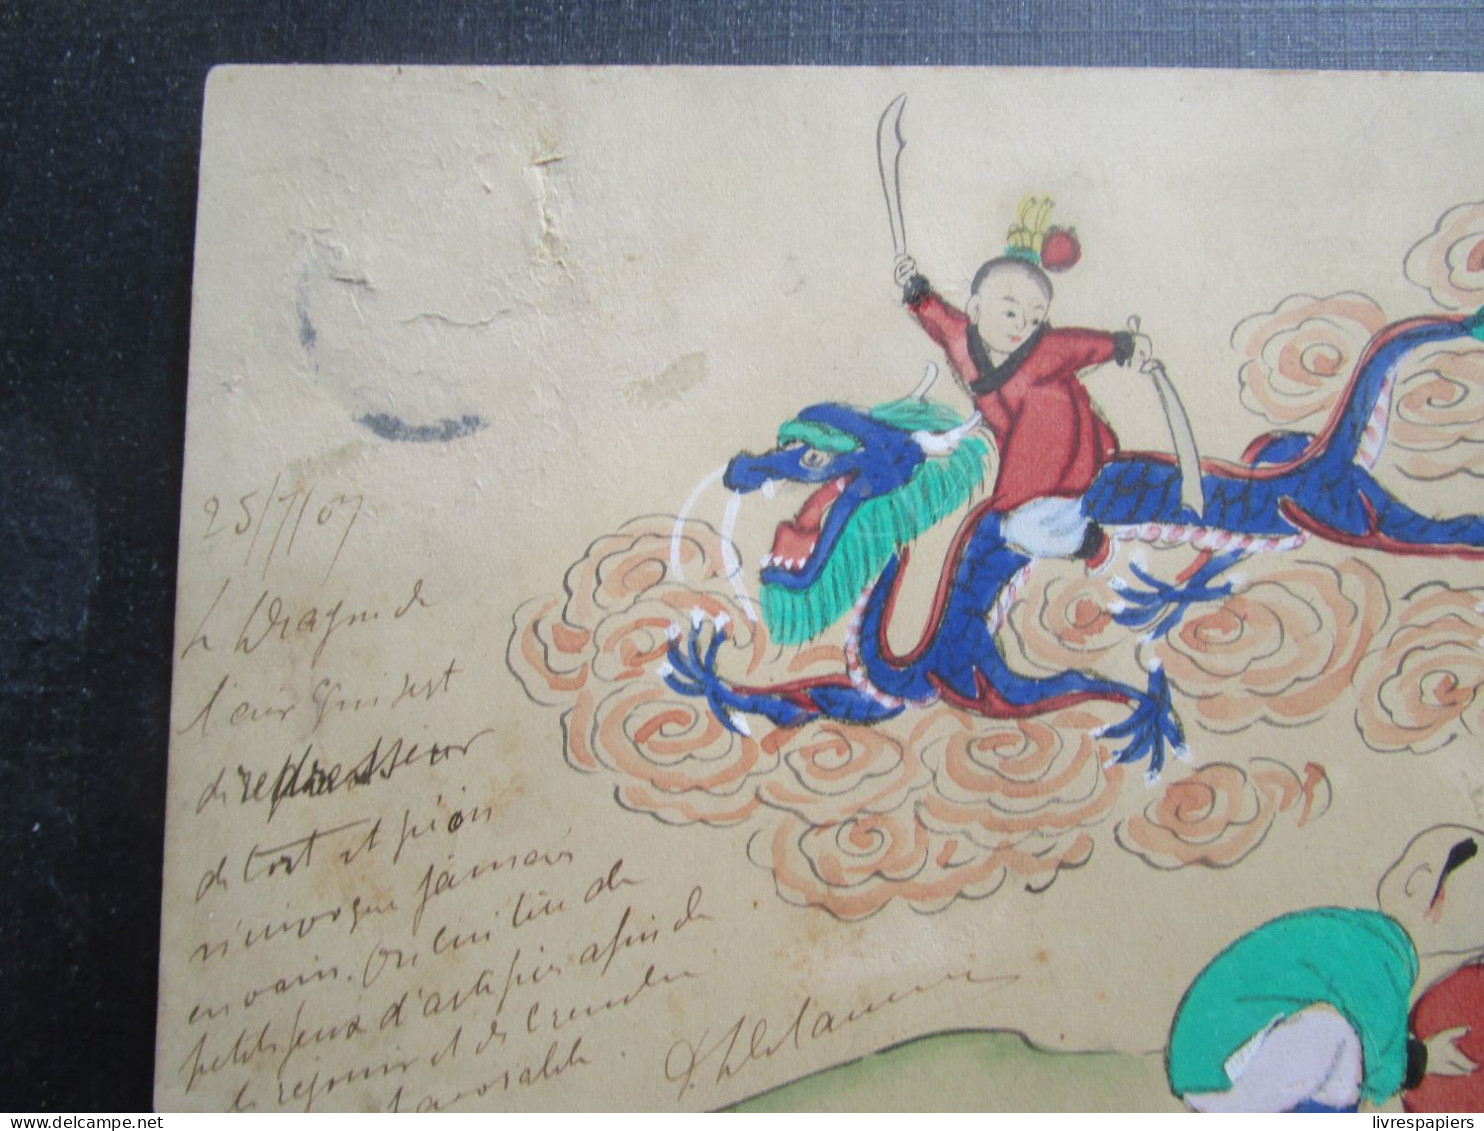 25/7/07
Le Dragon de
l'air qui sert
de redresseur
de tort et qu'on
n'invoque jamais
en vain. On lui tire de
petits feux d'artifices afin de
le réjouir et de le rendre
favorable.
livrespapiers